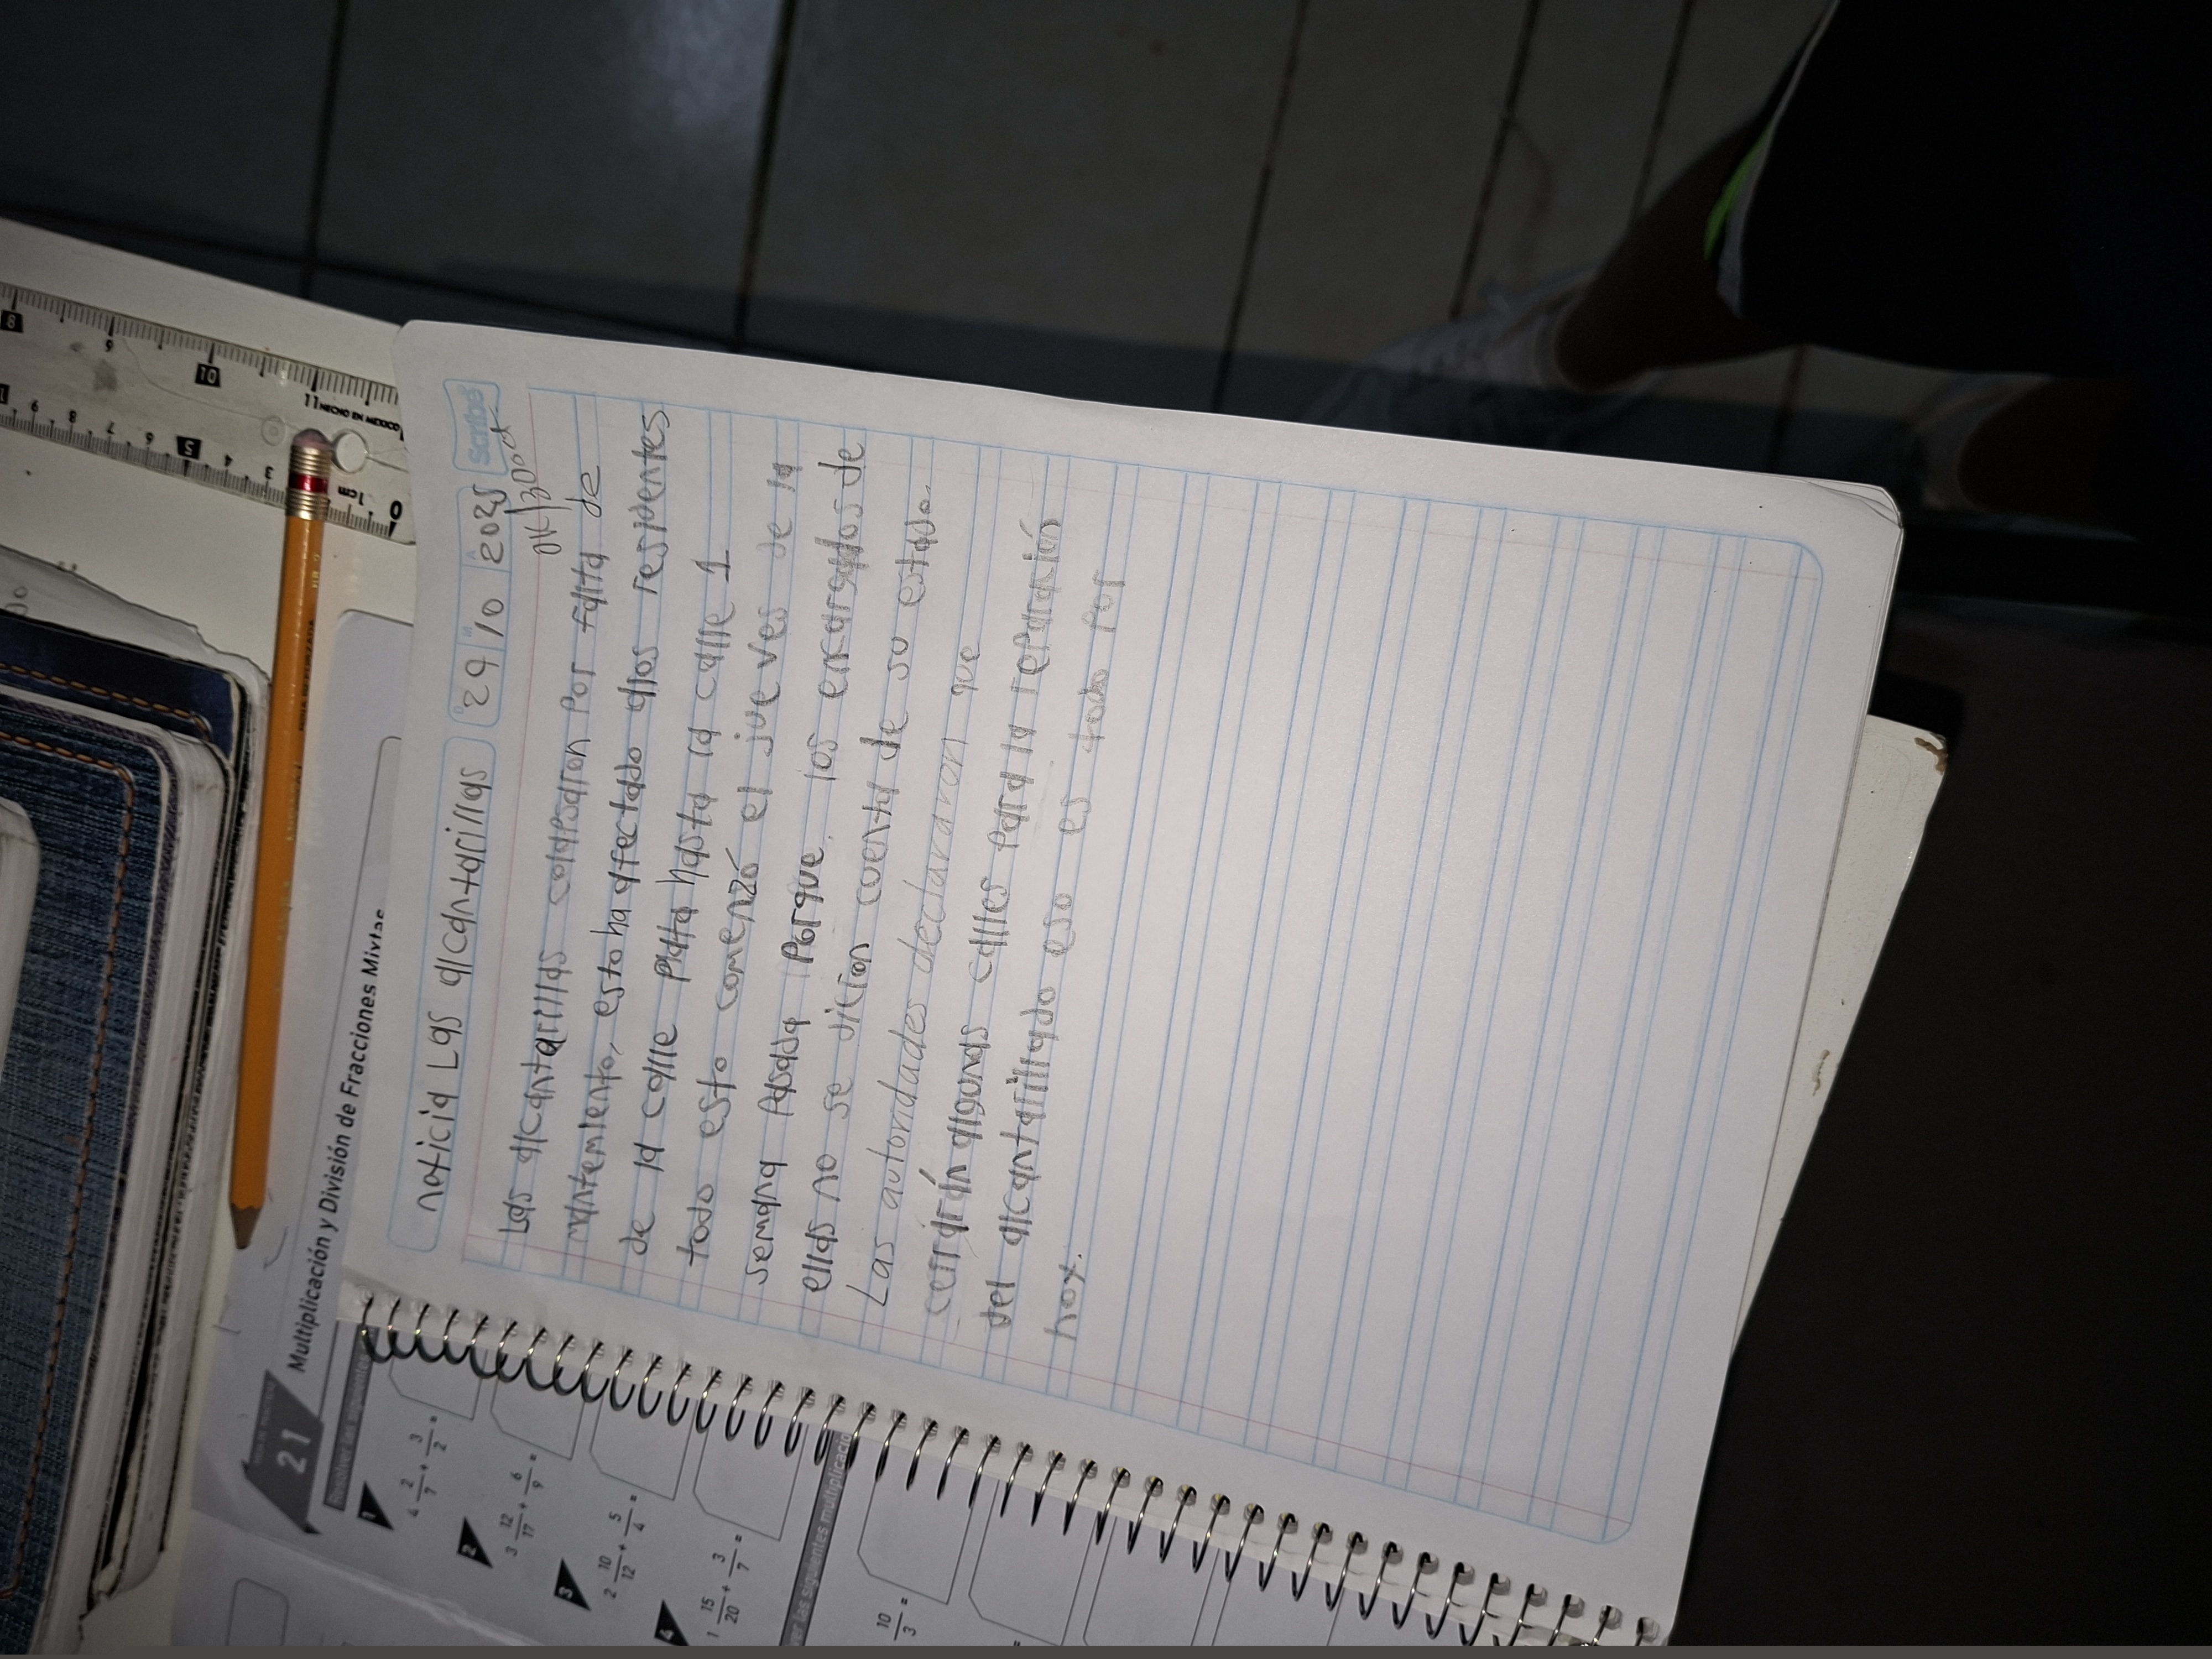 noticia Las alcantarillas
29/10/2025
Scribe
Las alcantarillas colapsaron por falta de
mantenimiento, esto ha afectado alos residentes
de la calle plata hasta la calle 1
todo esto comenzó el jueves de la
semana pasada Porque, los encargados de
ellas no se dicion cuenta de so estado.
Las autoridades declararon que
cerrarán algunas calles para la reparación
del alcantarillado eso es todo por
hoy.
21
Multiplicación y División de Fracciones Mixtas
1
4 2/7 + 3/2 =
2
3 12/17 + 6/9 =
3
2 10/12 + 5/4 =
4
1 15/20 + 3/7 =
10/3 =
8
9
10
11 HECHO EN MEXICO
9 8 7 6 5 4 3
1cm
0